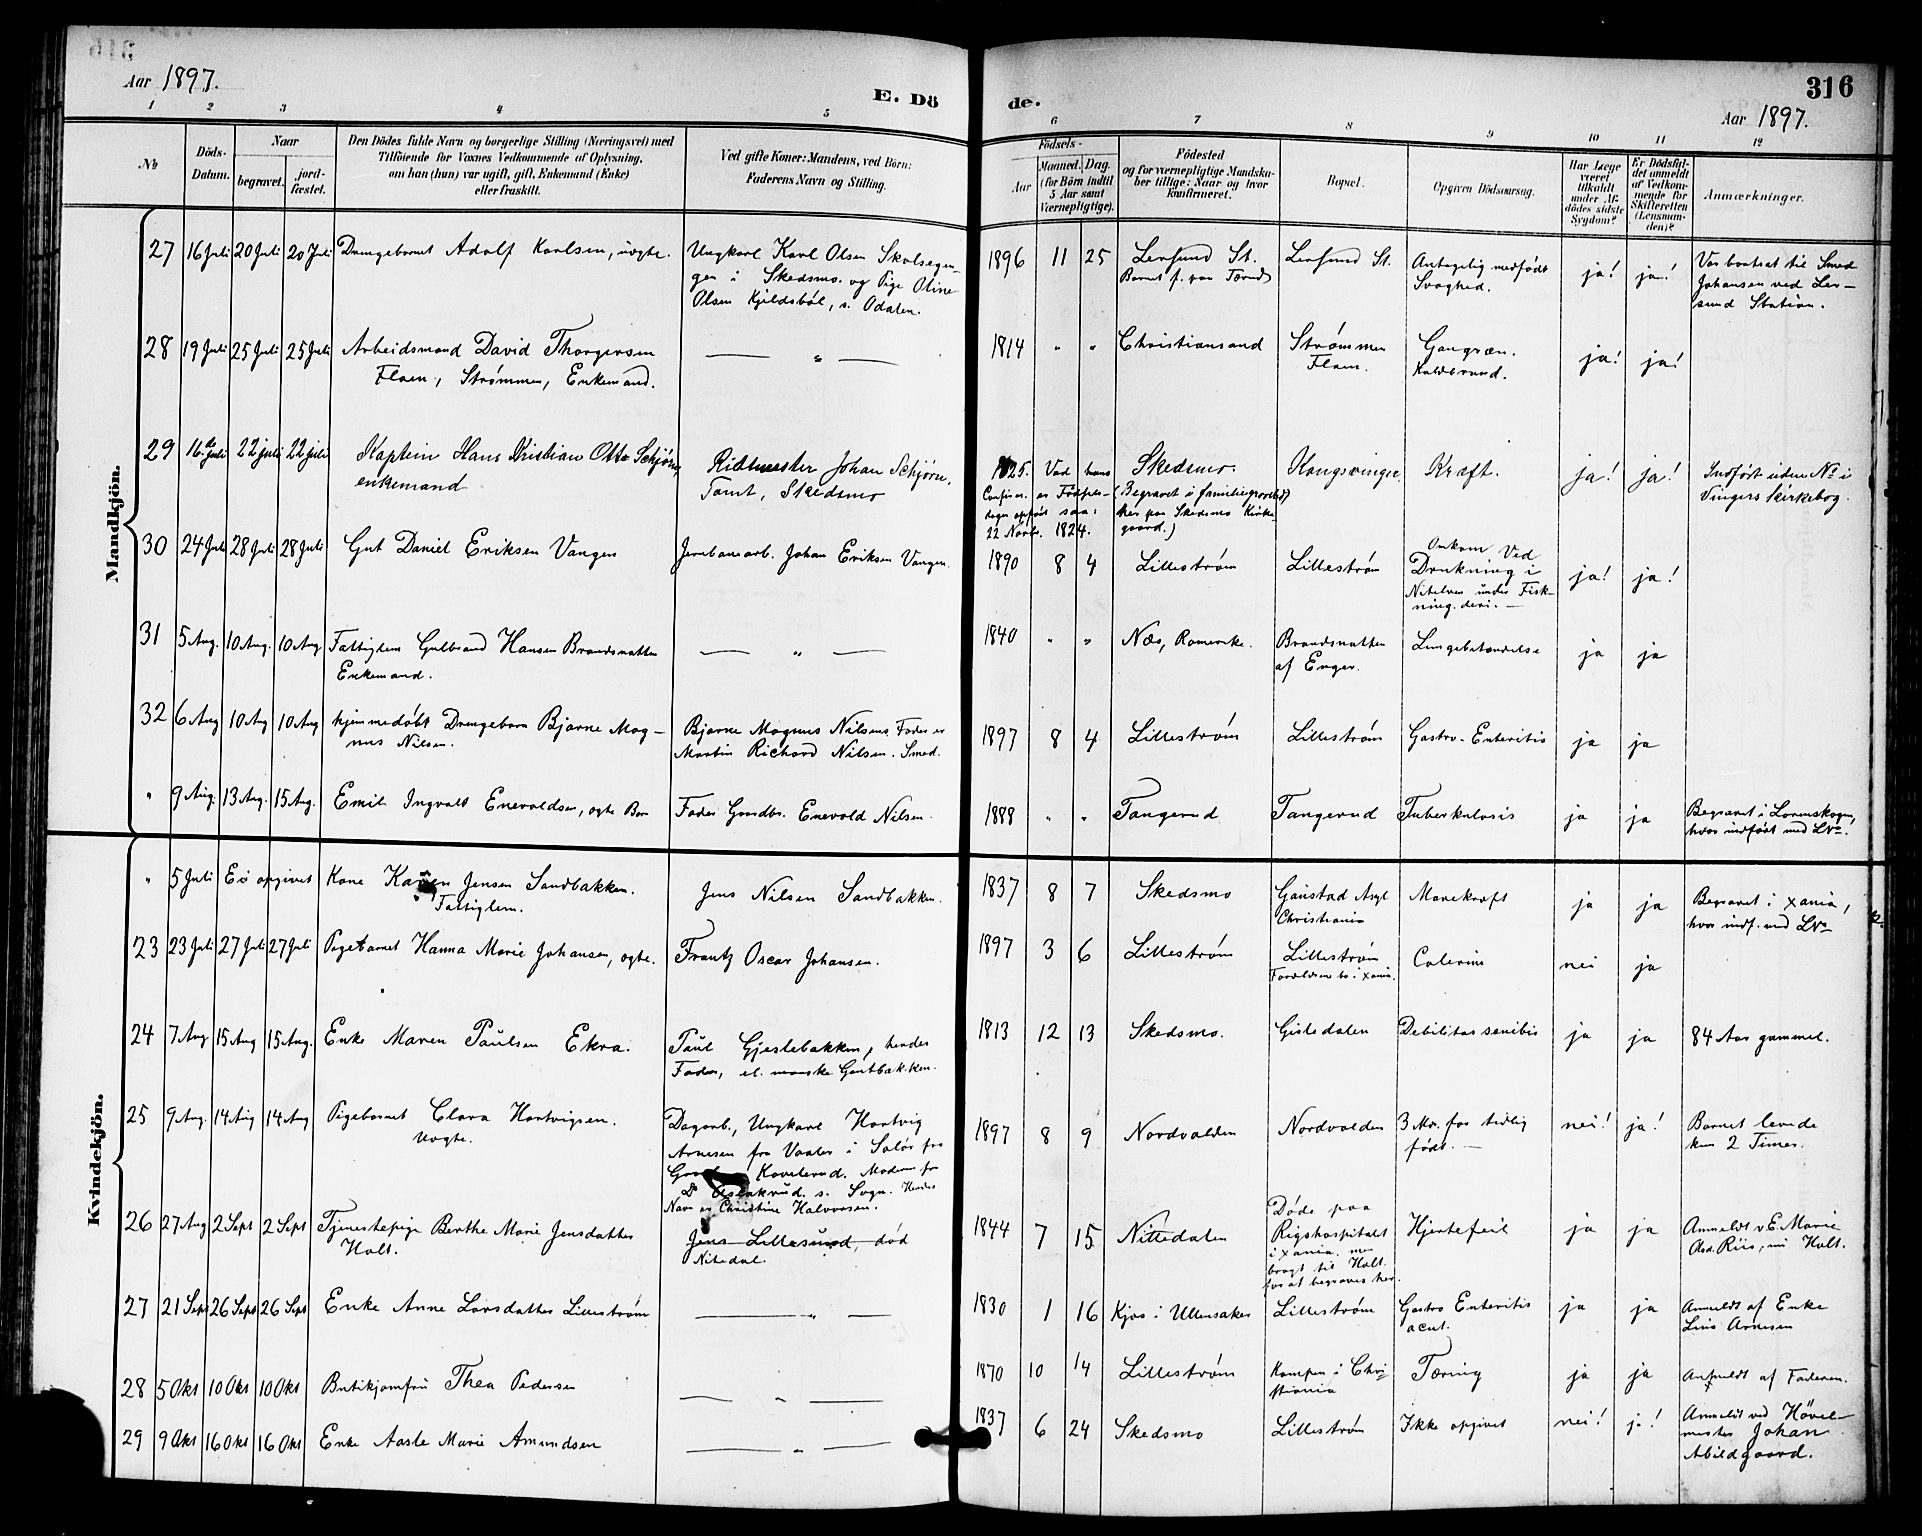 Aar 1897.
E. Dö
de.
316
Aar 1897.
1 2 3 4 5 6 7 8 9 10 11 12
No
Döds-
Datum.
Naar
begravet.
jord-
fæstet.
Den Dödes fulde Navn og borgerlige Stilling (Næringsvei) med
Tilföiende for Voxnes Vedkommende af Oplysning,
om han (hun) var ugift, gift, Enkemand (Enke)
eller fraskilt.
Ved gifte Koner: Mandens, ved Börn:
Faderens Navn og Stilling.
Födsels-
Aar
Maaned.
Dag.
(for Börn indtil
5 Aar samt
Værnepligtige).
Födested
og for værnepligtige Mandska-
ber tillige: Naar og hvor
konfirmeret.
Bopæl.
Opgiven Dödsaarsag.
Har Læge
været
tilkaldt
under Af-
dödes sidste
Sygdom?
Er Dödsfal-
det anmeldt
af Vedkom-
mende for
Skifteretten
(Lensman-
den)?
Anmærkninger.
Mandkjön.
27 16 Juli 20 Juli 20 Juli Drengebarnet Adolf Karlsen, uægte.
Ungkarl Karl Olsen
i Skedsmo. og Pige Oline
Olsen Kjeldsböl, s. Odalen.
1896 11 25 Lersund St.
Lersund St.
Antagelig medfödt
Svaghed.
ja! ja!
Var bortsat til Smed
Johansen ved Ler-
sund Station.
28 19 Juli 25 Juli 25 Juli Arbeidsmand David Thorgersen
Flaen, Strømmen, Enkemand.
— " —
1814 " " Christiansand
Strømmen
Flaen.
Gangræn.
Koldbrand.
ja! ja!
29 16de Juli 22 juli 22 juli Kaptein Hans Kristian Otto Schjørn,
enkemand
Ridtmester Johan Schjørn,
Tomt, Skedsmo
1825. Ved hans
er Födsels-
dagen opført saa:
22 Novbr. 1824.
Skedsmo.
(Begravet i familiegravsted
paa Skedsmo Kirke-
gaard.)
Kongsvinger
Kræft.
ja! ja!
Indført uden No i
Vingers Kirkebog.
30 24 Juli 28 Juli 28 Juli Gut Daniel Eriksen Vangen
Jernbanearb. Johan Eriksen Vangen.
1890 8 4 Lillestrøm
Lillestrøm
Omkom ved
Drukning i
Nitelven under Fisk-
ning deri. —
ja! ja!
31 5 Aug. 10 Aug. 10 Aug Fattiglem Gulbrand Hansen Brandsnatten
Enkemand.
— " —
1840 " " Næs, Romerike.
Brandsnatten
af Enger.
Lungebetændelse
ja ja
32 6 Aug 10 Aug 10 Aug hjemmedøbt Drengebarn Bjarne Mag-
nus Nilsen.
Bjarne Magnus Nilsens Fader er
Martin Richard Nilsen. Smed.
1897 8 4 Lillestrøm
Lillestrøm
Gastro-Enteritis
ja ja
" 9 Aug. 13 Aug. 15 Aug. Emil Ingvald Enevoldsen, ægte Barn
Fader Gaardbr. Enevold Nilsen.
1888 " " Tangerud
Tangerud
Tuberkulosis
ja ja
Begravet i Lørenskogen,
hvor indført med LNo.
Kvindekjön.
" 5 Juli Ei opgivet Kone Karen Jensen Sandbakken.
Fattiglem.
Jens Nilsen Sandbakken.
1837 8 7 Skedsmo
Gaustad Asyl
Christiania
Mavekræft
ja ja
Begravet i Xania,
hvor indf. med LNo
23 23 Juli 27 Juli 27 Juli Pigebarnet Hanna Marie Johansen, ægte.
Frantz Oscar Johansen.
1897 3 6 Lillestrøm
Lillestrøm
Forældrene bo i Xania.
Colerine
nei ja
24 7 Aug 15 Aug 15 Aug. Enke Maren Paulsen Ekra.
Paul Gjestebakken, hendes
Fader, el. maaske Gautbakken.
1813 12 13 Skedsmo.
Gistedalen
Debilitas senilis
ja ja
84 Aar gammel.
25 9 Aug. 14 Aug 14 Aug Pigebarnet Clara Hartvigsen.
Uægte.
Dagarb., Ungkarl Hartvig
Arnesen fra Vaaler i Solør fra
Moderen fra
s. Sogn. Hendes
Navn er Christine Halvorsen.
1897 8 9 Nordvalden
Nordvalden
3 Mdr. for tidlig
født. —
nei! ja!
Barnet levede
kun 2 Timer.
26 27 Aug 2 Sept 2 Sept Tjenestepige Berthe Marie Jensdatter
Holt.
Jens Lillesund, død
Nitedal.
1844 7 15 Nittedalen
Døde paa
Rigshospitalet
i Xania, men
bragt til Holt
for at begraves her.
Hjertefeil
ja ja
Anmeldt v E. Marie
Riis, nu Holt.
27 21 Sept 26 Sept 26 Sept Enke Anne Larsdatter Lillestrøm
— " —
1830 1 16 Kjos i Ullensaker
Lillestrøm
Gastro Enteritis
acut.
ja ja
Anmeldt af Enke
Lina Arnesen
28 5 Okt 10 Okt 10 Okt Butikjomfru Thea Pedersen
— " —
1870 10 14 Lillestrøm
Kampen i Chri-
stiania
Tæring
ja ja
Anmeldt af Faderen.
29 9 Okt 16 Okt 16 Okt Enke Aasle Marie Amundsen
— " —
1837 6 24 Skedsmo
Lillestrøm
Ikke opgivet
nei! ja!
Anmeldt ved Høvel-
mester Johan
Abildgaard.